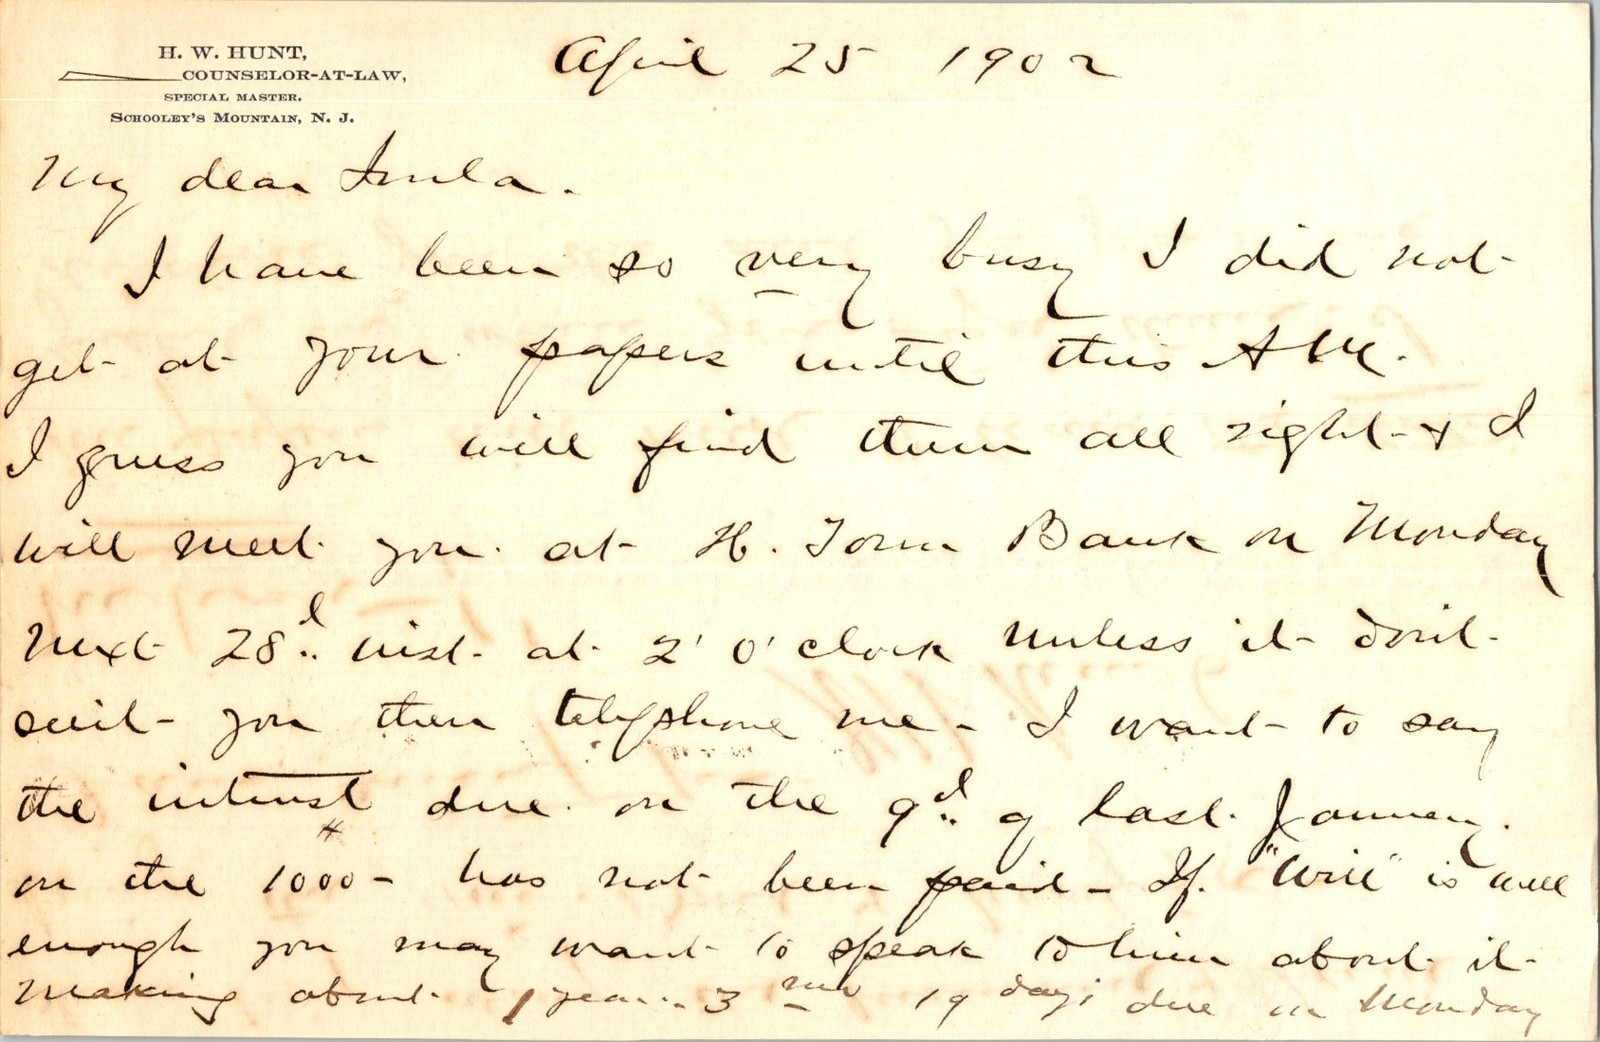 H. W. HUNT,
COUNSELOR-AT-LAW,
SPECIAL MASTER.
SCHOOLEY'S MOUNTAIN, N. J.
April 25 1902
My dear
I have been so very busy I did not
get at your papers until this AM.
I guess you will find them all right & I
will meet you at H. Town Bank on Monday
next 28d inst. at 2' o'clock unless it don't
suit you then telephone me - I want to say
the interest due on the 9d of last January
on the $1000 - has not been paid - If "Will" is well
enough you may want to speak to him about it
Making about 1 year 3 mo 19 days due on Monday